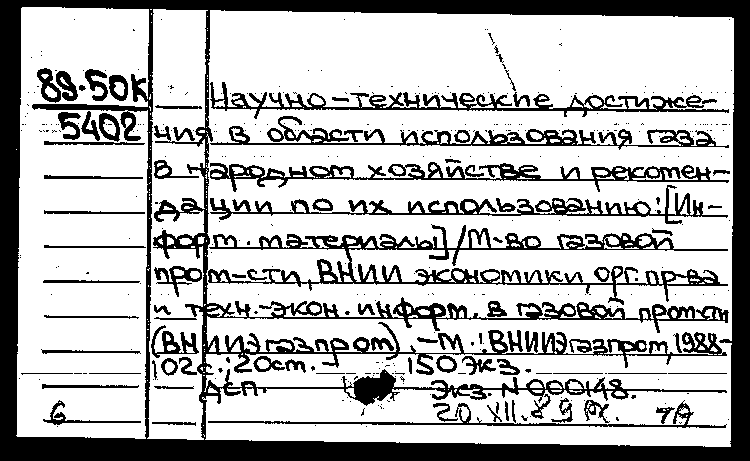 89-50К
5402
Научно-технические достиже-
ния в области использования газа
в народном хозяйстве и рекомен-
дации по их использованию: [Ин-
форм. материалы] / М-во газовой
пром-сти, ВНИИ экономики, орг. пр-ва
и техн.-экон. информ. в газовой пром-сти
(ВНИИЭгазпром). - М.: ВНИИЭгазпром, 1988-
102с.; 20см. - 150 экз.
ДСП. Экз. N 000148.
6 20.XII.89